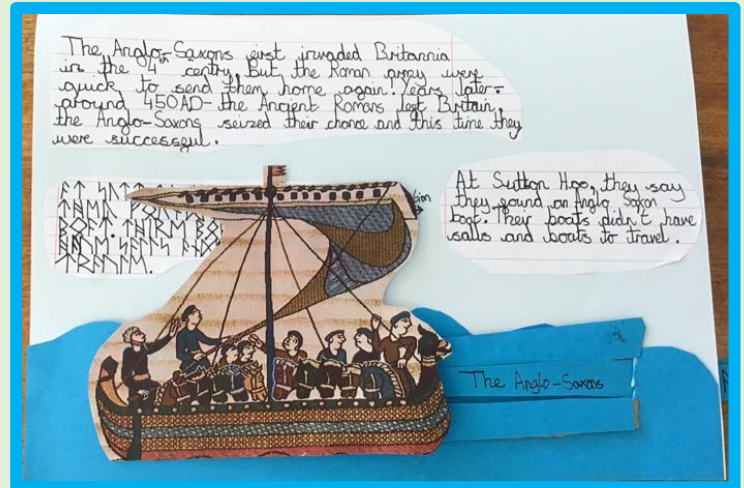 The Anglo-Saxons first invaded Britannia
in the 4th centry, but the Roman army were
quick to send them home again! Years later-
around 450AD- the Ancient Romans left Britain,
the Anglo-Saxons seized their chance and this time they
were successful.
At Sutton Hoo, they say
they found an Anglo Saxon
boat. Their boats didn't have
sails and boats to travel.
The Anglo-Saxons